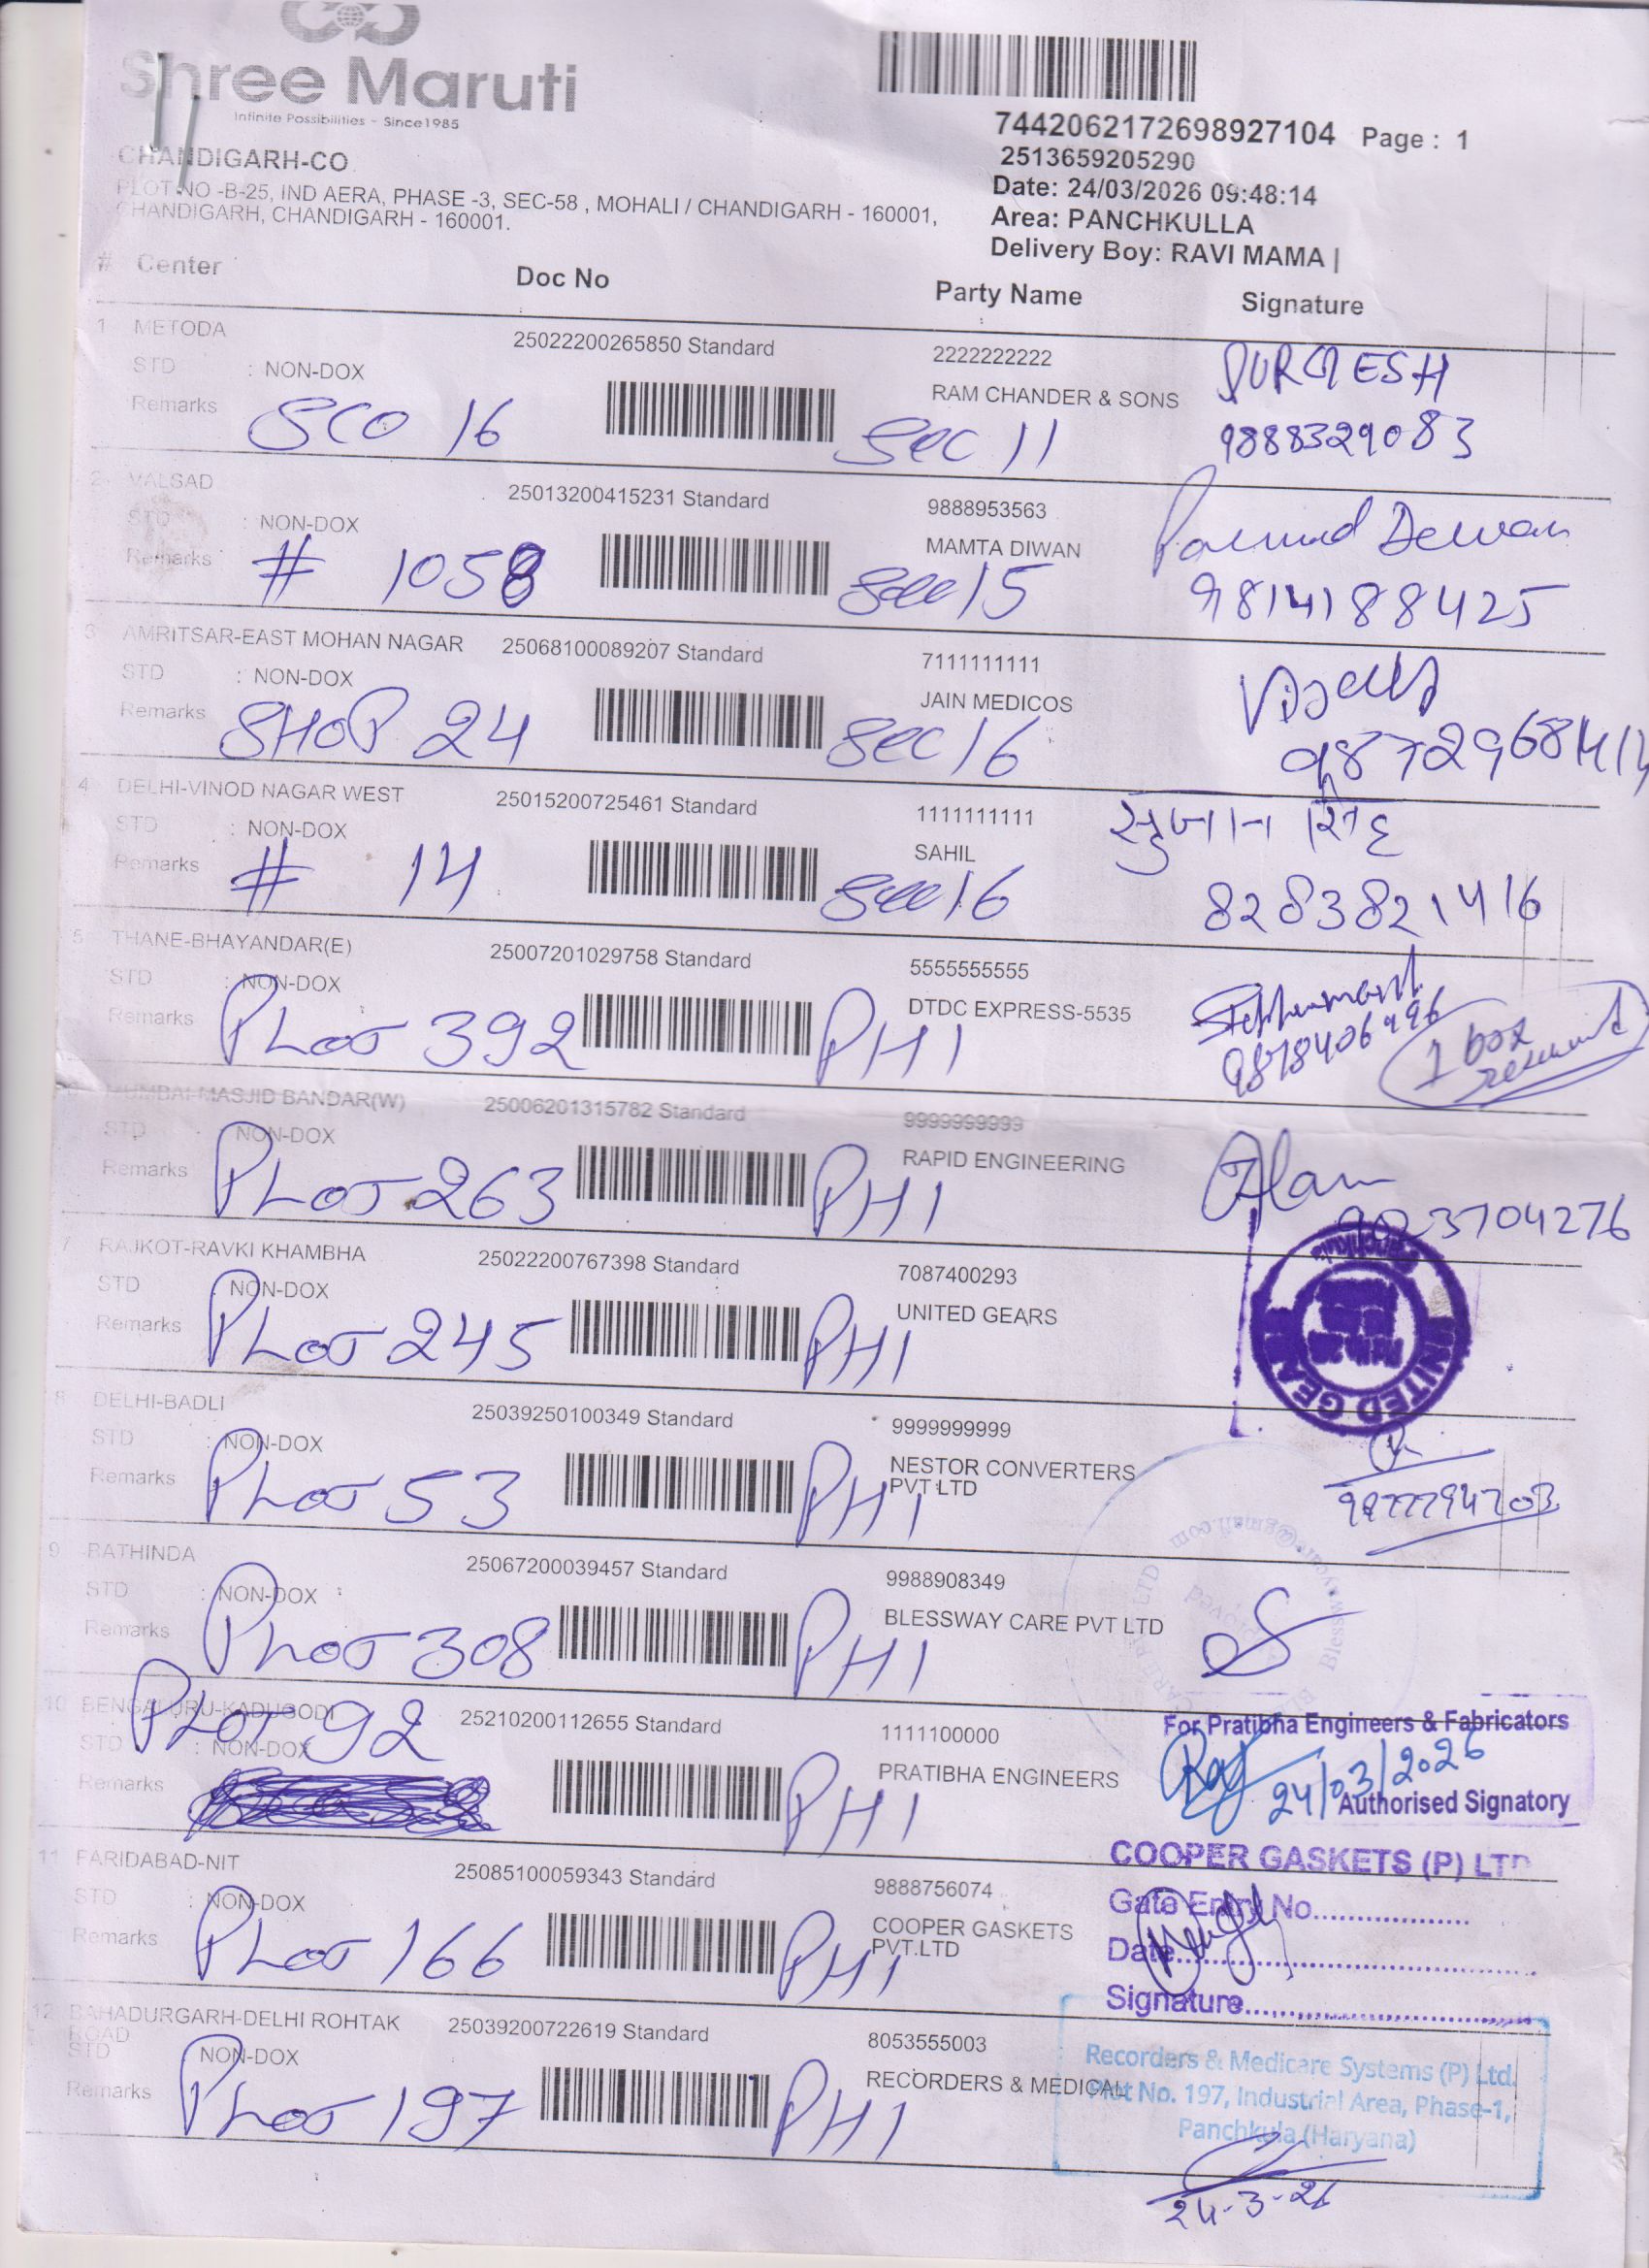 Shree Maruti
Infinite Possibilities - Since1985
7442062172698927104 Page : 1
2513659205290
Date: 24/03/2026 09:48:14
Area: PANCHKULLA
Delivery Boy: RAVI MAMA |
CHANDIGARH-CO
PLOT NO -B-25, IND AERA, PHASE -3, SEC-58 , MOHALI / CHANDIGARH - 160001,
CHANDIGARH, CHANDIGARH - 160001.
# Center Doc No Party Name Signature
1 METODA 25022200265850 Standard 2222222222 DURGESH
STD : NON-DOX RAM CHANDER & SONS
Remarks SCO 16 SEC 11 9888329083
2 VALSAD 25013200415231 Standard 9888953563
STD : NON-DOX MAMTA DIWAN Dewan
Remarks # 1058 Sec 15 9814188425
3 AMRITSAR-EAST MOHAN NAGAR 25068100089207 Standard 7111111111
STD : NON-DOX JAIN MEDICOS
Remarks SHOP 24 SEC 16
4 DELHI-VINOD NAGAR WEST 25015200725461 Standard 1111111111
STD : NON-DOX SAHIL
Remarks # 14 Sec 16 8283821416
5 THANE-BHAYANDAR(E) 25007201029758 Standard 5555555555
STD : NON-DOX DTDC EXPRESS-5535
Remarks PLOT 392 PH 1 1 box
6 MUMBAI-MASJID BANDAR(W) 25006201315782 Standard 9999999999
STD NON-DOX RAPID ENGINEERING
Remarks PLOT 263 PH 1 9023704276
7 RAJKOT-RAVKI KHAMBHA 25022200767398 Standard 7087400293
STD NON-DOX UNITED GEARS
Remarks PLOT 245 PH 1 UNITED GEARS Panchkula
8 DELHI-BADLI 25039250100349 Standard 9999999999
STD : NON-DOX NESTOR CONVERTERS
Remarks PLOT 53 PH 1 PVT LTD
9 BATHINDA 25067200039457 Standard 9988908349
STD : NON-DOX BLESSWAY CARE PVT LTD
Remarks PLOT 308 PH 1
10 BENGALURU-KADUGODI 25210200112655 Standard 1111100000 For Pratibha Engineers & Fabricators
PLOT 92
STD : NON-DOX PRATIBHA ENGINEERS 24/03/2026
Remarks PH 1 Authorised Signatory
11 FARIDABAD-NIT 25085100059343 Standard 9888756074 COOPER GASKETS (P) LTD
STD : NON-DOX COOPER GASKETS Gate Entry No..................
Remarks PLOT 166 PH 1 PVT.LTD Date....................................
Signature................................
12 BAHADURGARH-DELHI ROHTAK 25039200722619 Standard 8053555003
ROAD
STD NON-DOX RECORDERS & MEDICAL
Remarks PLOT 197 PH 1
Recorders & Medicare Systems (P) Ltd.
Plot No. 197, Industrial Area, Phase-1,
Panchkula (Haryana)
24-3-26